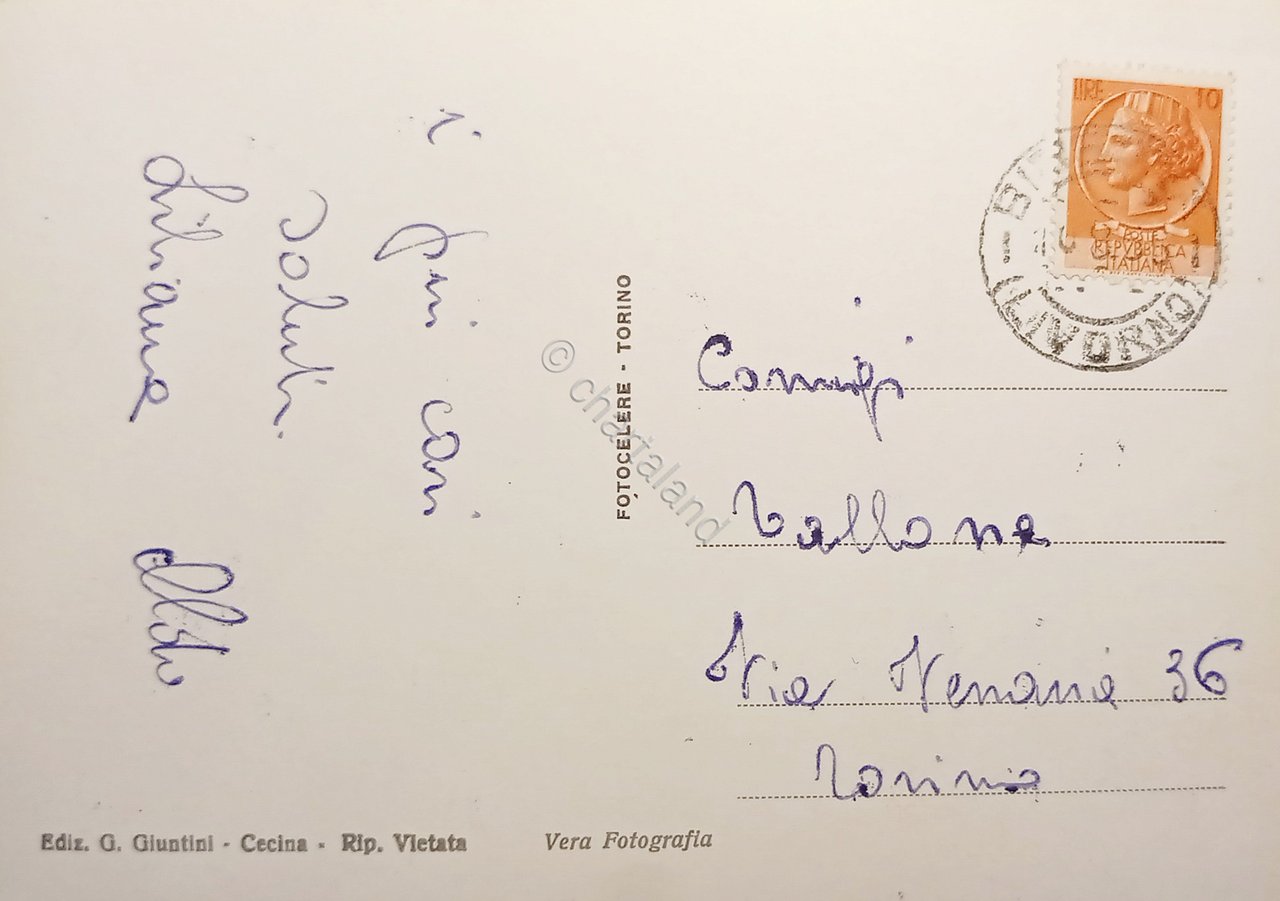 i
più cari
saluti.
Liliana Aldo
FOTOCELERE - TORINO
© chartaland
LIRE 10
POSTE
REPVBBLICA
ITALIANA
(LIVORNO)
Coniugi
Vallone
Via Venaria 36
Torino
Ediz. G. Giuntini - Cecina - Rip. Vietata
Vera Fotografia